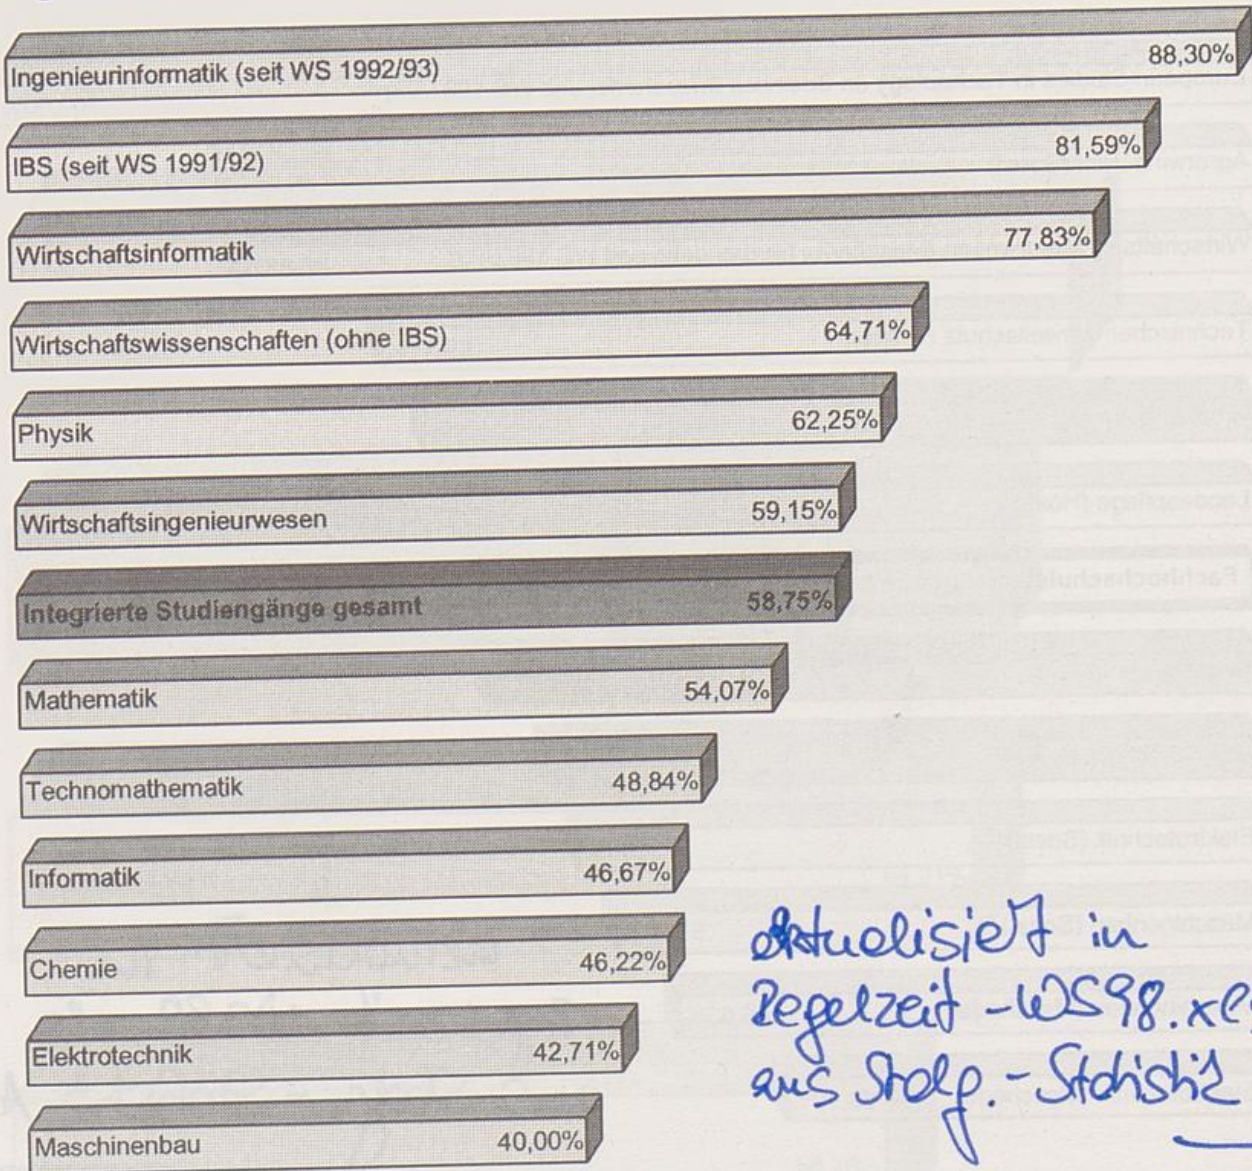 Ingenieurinformatik (seit WS 1992/93) 88,30%
IBS (seit WS 1991/92) 81,59%
Wirtschaftsinformatik 77,83%
Wirtschaftswissenschaften (ohne IBS) 64,71%
Physik 62,25%
Wirtschaftsingenieurwesen 59,15%
Integrierte Studiengänge gesamt 58,75%
Mathematik 54,07%
Technomathematik 48,84%
Informatik 46,67%
Chemie 46,22%
Elektrotechnik 42,71%
Maschinenbau 40,00%
aktualisiert in
Regelzeit - WS98.xl
aus - Statistik